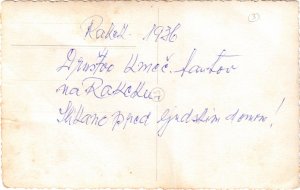 Rakek. 1936
Društvo Kmeč. fantov
na Rakeku.
Slikano pred ljudskim domom!